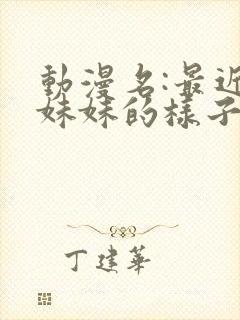 動漫名:最近
妹妹的樣子
丁建華